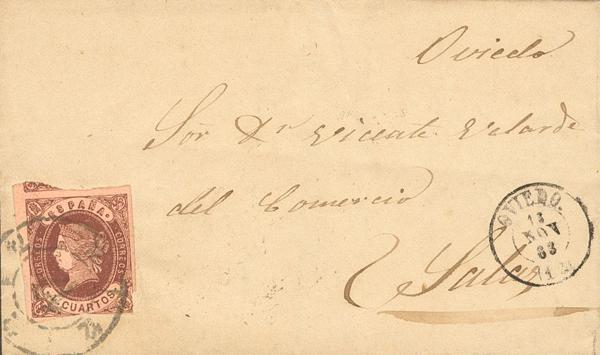 Oviedo
Sor Dn Vicente Velarde
del Comercio
Salas
OVIEDO
13
NOV
63
ESPAÑA
CORREOS
CORREOS
4 CUARTOS